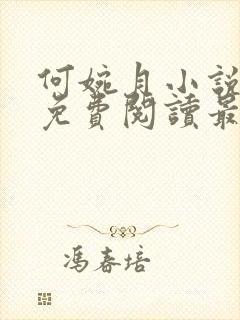 何婉月小說
免費閱讀最
馮春培